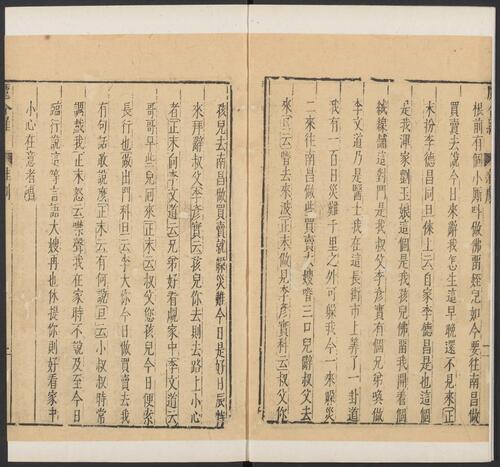 根前有個小厮叫做佛留姪兒如今要往南昌做
買賣去說今日來辭我怎生這早晚還不見來正
末扮李德昌同旦俫上云自家李德昌是也這個
是我渾家劉玉娘這個是我孩兒佛留我開着個
絨線鋪這對門是我叔父李彦實有個兄弟喚做
李文道乃是醫士我在這長街市上筭了一卦道
我有一百日災難千里之外可躱我今一來躱災
二來往南昌做些買賣大嫂喒三口兒辭叔父去
來旦云喒去來波正末做見李彦實科云叔父你
孩兒去南昌做買賣就躱災難今日是好日辰特
來拜辭叔父李彦實云孩兒你去則去路上小心
者正末向李文道云兄弟好看覷家中李文道云
哥哥早些兒囬來正末云叔父您孩兒今日便索
長行也做出門科旦云李大你今日做買賣去我
有句話敢說麽正末云有何說旦云小叔叔時常
調戲我正末怒云噤聲我在家時不說及至今日
臨行說這等言語大嫂再也休提你則好看家中
小心在意者唱